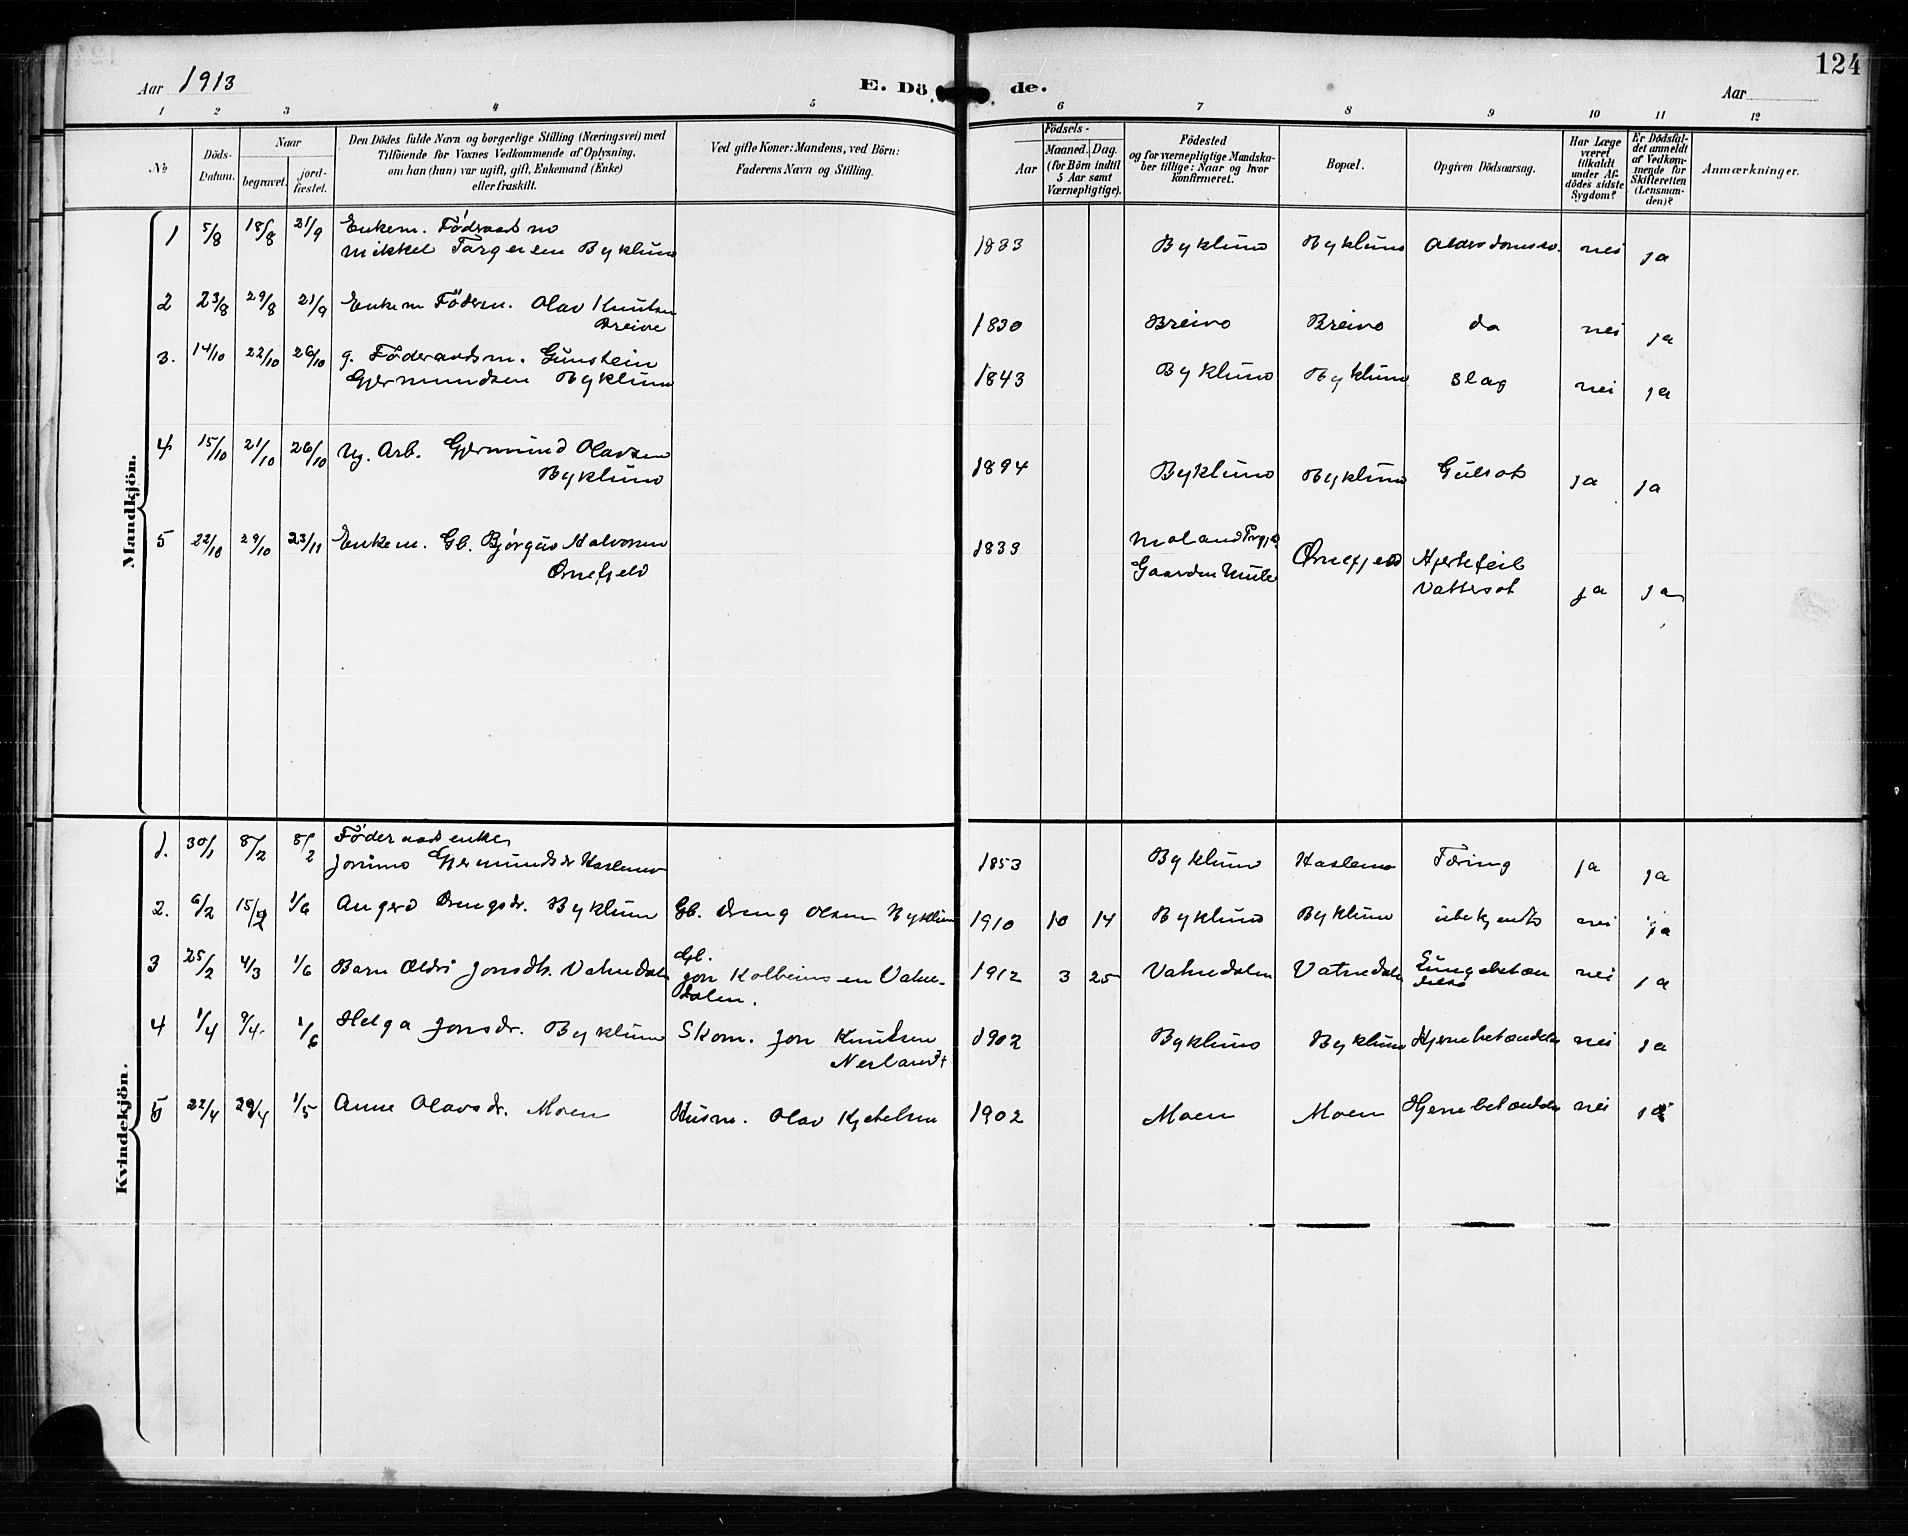 124
Aar 1913
E. Dö de.
Aar
1 2 3 4 5 6 7 8 9 10 11 12
No
Döds-Datum.
Naar
begravet.
jord-fæstet.
Den Dödes fulde Navn og borgerlige Stilling (Næringsvei) med
Tilföiende for Voxnes Vedkommende af Oplysning,
om han (hun) var ugift, gift, Enkemand (Enke)
eller fraskilt.
Ved gifte Koner: Mandens, ved Börn:
Faderens Navn og Stilling.
Födsels-
Aar
Maaned. Dag.
(for Börn indtil
5 Aar samt
Værnepligtige).
Födested
og for værnepligtige Mandska-
ber tillige: Naar og hvor
konfirmeret.
Bopæl.
Opgiven Dödsaarsag.
Har Læge
været
tilkaldt
under Af-
dödes sidste
Sygdom?
Er Dödsfal-
det anmeldt
af Vedkom-
mende for
Skifteretten
(Lensman-
den)?
Anmærkninger.
Mandkjön.
1 5/8 18/8 21/9 Enkem. Föderaadsm
Mikkel Targeisen Byklum 1833 Byklum Byklum nei ja
2 23/8 29/8 21/9 Enkem Föderm. Olav Knutsen
Breive 1830 Breive Breive do nei ja
3. 14/10 22/10 26/10 g. Föderaadsm. Gunstein
Gjermundsen Byklum 1843 Byklum Byklum Slag nei ja
4 15/10 21/10 26/10 Ug. Arb. Gjermund Olavsen
Byklum 1894 Byklum Byklum Gulsot ja ja
5 22/10 29/10 23/11 Enkem. Gb. Bjørguv Halvorsen
Ørnefjeld 1833 Moland Prgj.
Gaarden Ørnefjeld Hjertefeil
Vattersot ja ja
Kvindekjön.
1. 30/1 8/2 8/2 Föderaadsenke
Gjermundsdr Haslemo 1853 Byklum Haslemo Tæring ja ja
2. 6/2 15/2 1/6 Angerd Drengsdr. Byklum Gb. Dreng Olsen Byklum 1910 10 14 Byklum Byklum ubekjendt nei ja
3 25/2 4/3 1/6 Barn Jonsdtr. Vatnedalen Gb.
Jon Kolbeinsen Vatne-
dalen. 1912 3 25 Vatnedalen Vatnedalen Lungebetæn
delse nei ja
4 1/4 9/4 1/6 Helga Jonsdr. Byklum Skom. Jon Knutsen
Nesland 1902 Byklum Byklum Hjernebetændelse nei ja
5 22/4 29/4 1/5 Anne Olavsdr. Moen Husm. Olav Kjetelsen 1902 Moen Moen Hjernebetændelse nei ja